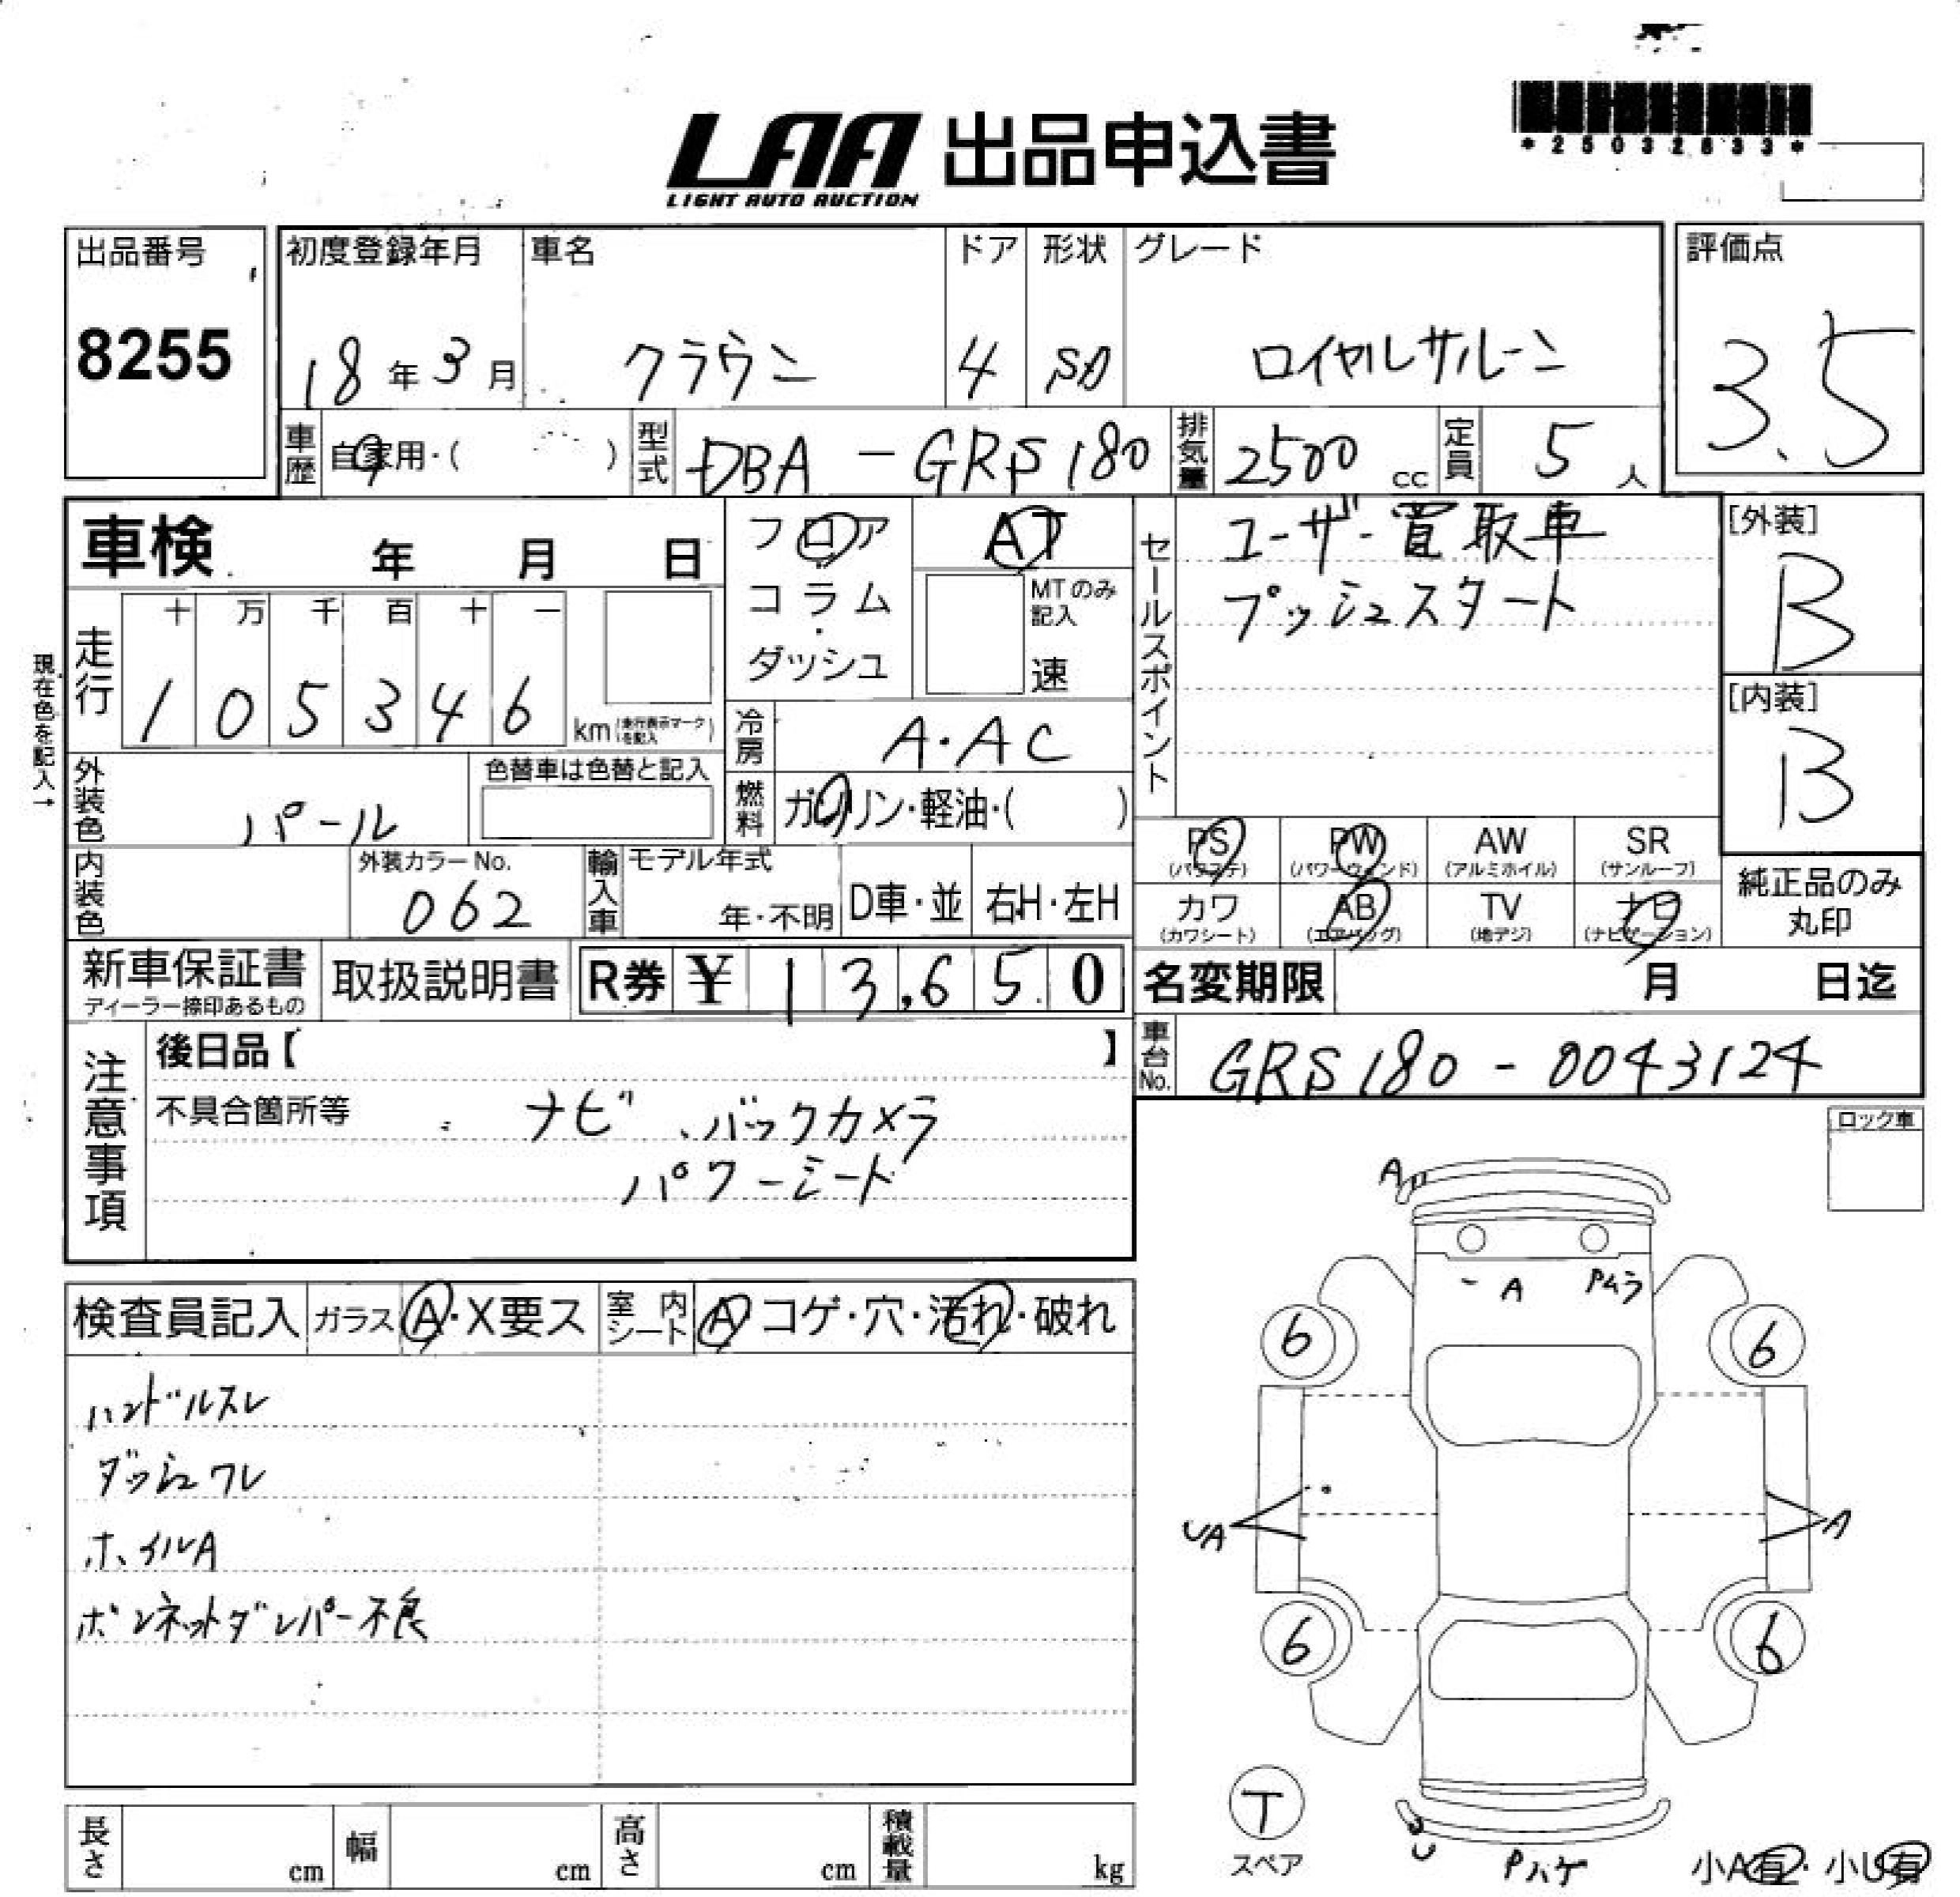 *25032633*
LAA 出品申込書
LIGHT AUTO AUCTION
出品番号
8255
初度登録年月
18年3月
車名
クラウン
ドア
4
形状
SD
グレード
ロイヤルサルーン
評価点
3.5
車歴
自家用・( )
型式
DBA-GRS180
排気量
2500 cc
定員
5人
車検 年 月 日
フロア
コラム
・
ダッシュ
AT
MTのみ
記入
速
セールスポイント
ユーザー買取車
プッシュスタート
[外装]
B
[内装]
B
現在色を記入→
走行
十 万 千 百 十 一
1 0 5 3 4 6
km (走行表示マークを記入)
冷房
A・AC
外装色
パール
色替車は色替と記入
燃料
ガソリン・軽油・( )
内装色
外装カラーNo.
062
輸入車
モデル年式
年・不明
D車・並
右H・左H
PS
(パワステ)
PW
(パワーウィンド)
AW
(アルミホイル)
SR
(サンルーフ)
カワ
(カワシート)
AB
(エアバッグ)
TV
(地デジ)
ナビ
(ナビゲーション)
純正品のみ
丸印
新車保証書
ディーラー捺印あるもの
取扱説明書
R券 ¥13,650
名変期限 月 日迄
注意事項
後日品【 】
車台No.
GRS180-0043124
不具合箇所等
ナビ、バックカメラ
パワーシート
ロック車
A
A
Pムラ
6
6
UA
A
6
6
検査員記入
ガラス
A・X要ス
室内シート
A コゲ・穴・汚れ・破れ
ハンドルスレ
ダッシュワレ
ホイルA
ボンネットダンパー不良
T
スペア
U
Pハゲ
小A有・小U有
長さ cm
幅 cm
高さ cm
積載量 kg